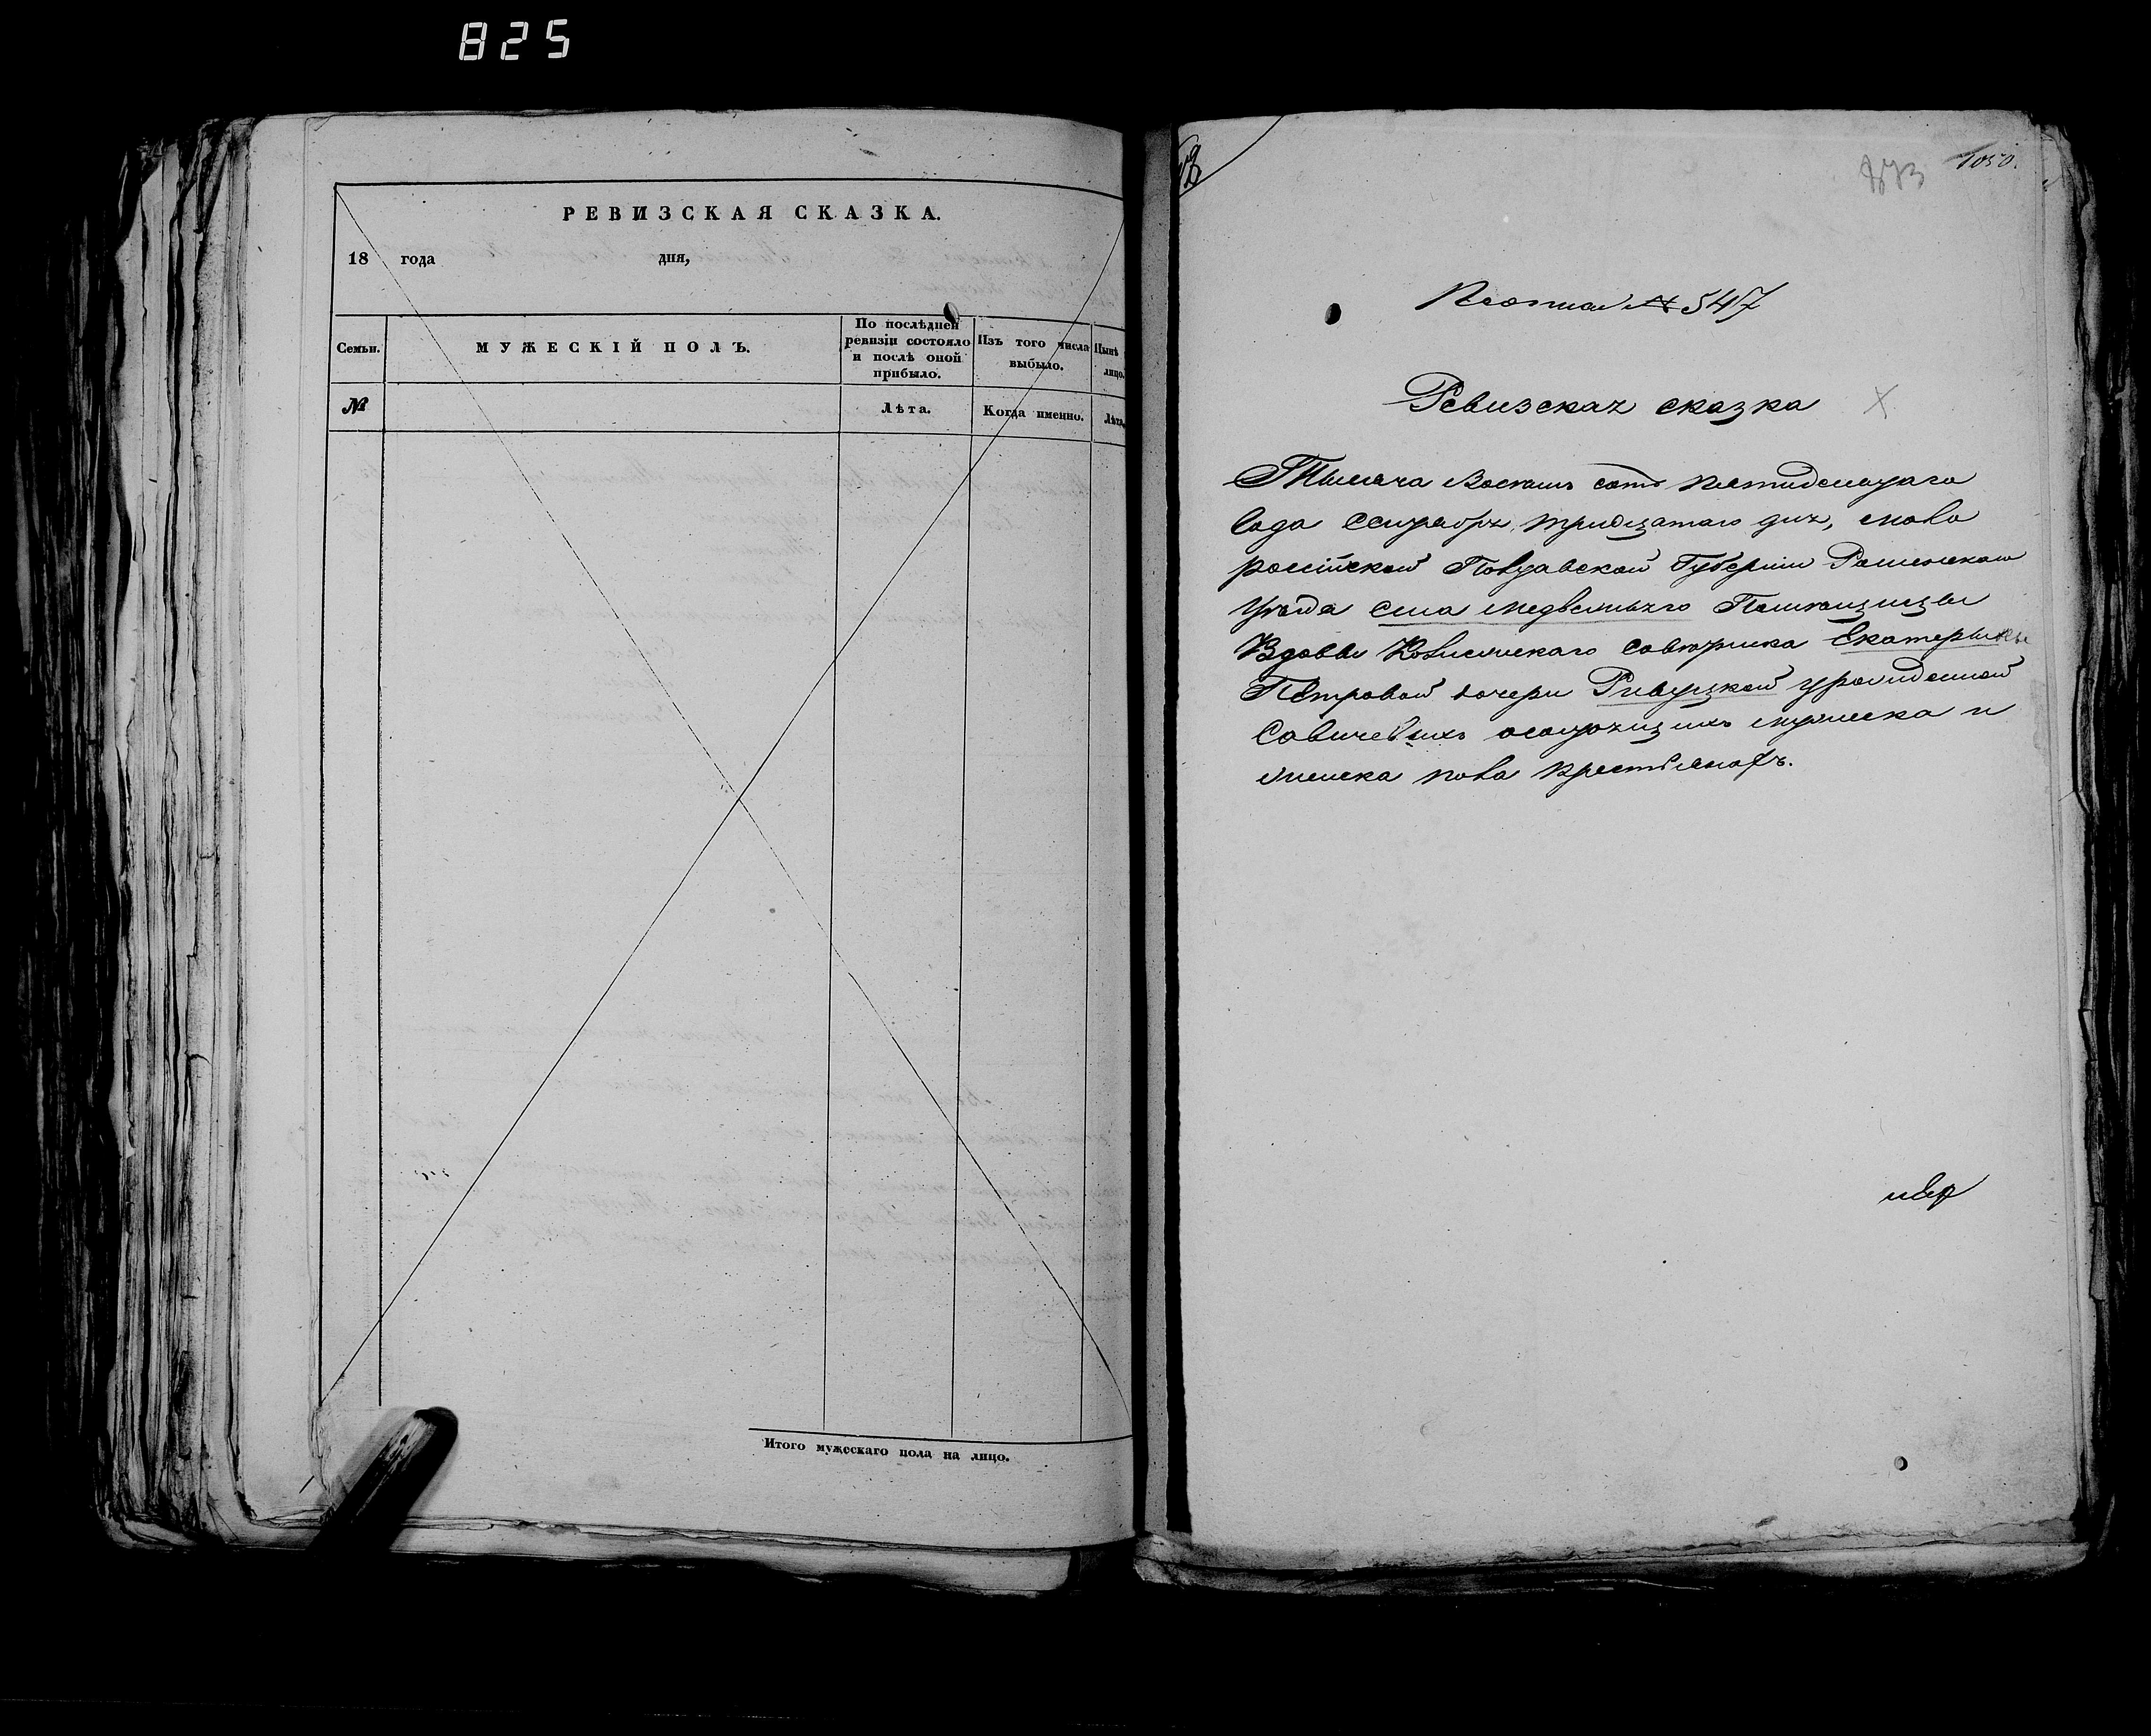 825
РЕВИЗСКАЯ СКАЗКА.
18 года дня,
Семьи.
МУЖЕСКІЙ ПОЛЪ.
По послѣдней ревизіи состояло и послѣ оной прибыло.
Изъ того числа выбыло.
Нынѣ лицо.
№
Лѣта.
Когда именно.
Лѣта
Итого мужескаго пола на лицо.
873
1050.
№ 547
Ревизская сказка
Тысяча Восемь сотъ пятидесятаго
Года Сентября, тридцатаго дня, мало
россійской Полтавской Губерніи Роменскаго
Уезда села Медвежьяго Помещицы
Вдовы Колежскаго Советника Екатерины
Петровой дочери урожденной
Савичевыхъ о состоящихъ мужеска и
женска пола крестьянахъ.